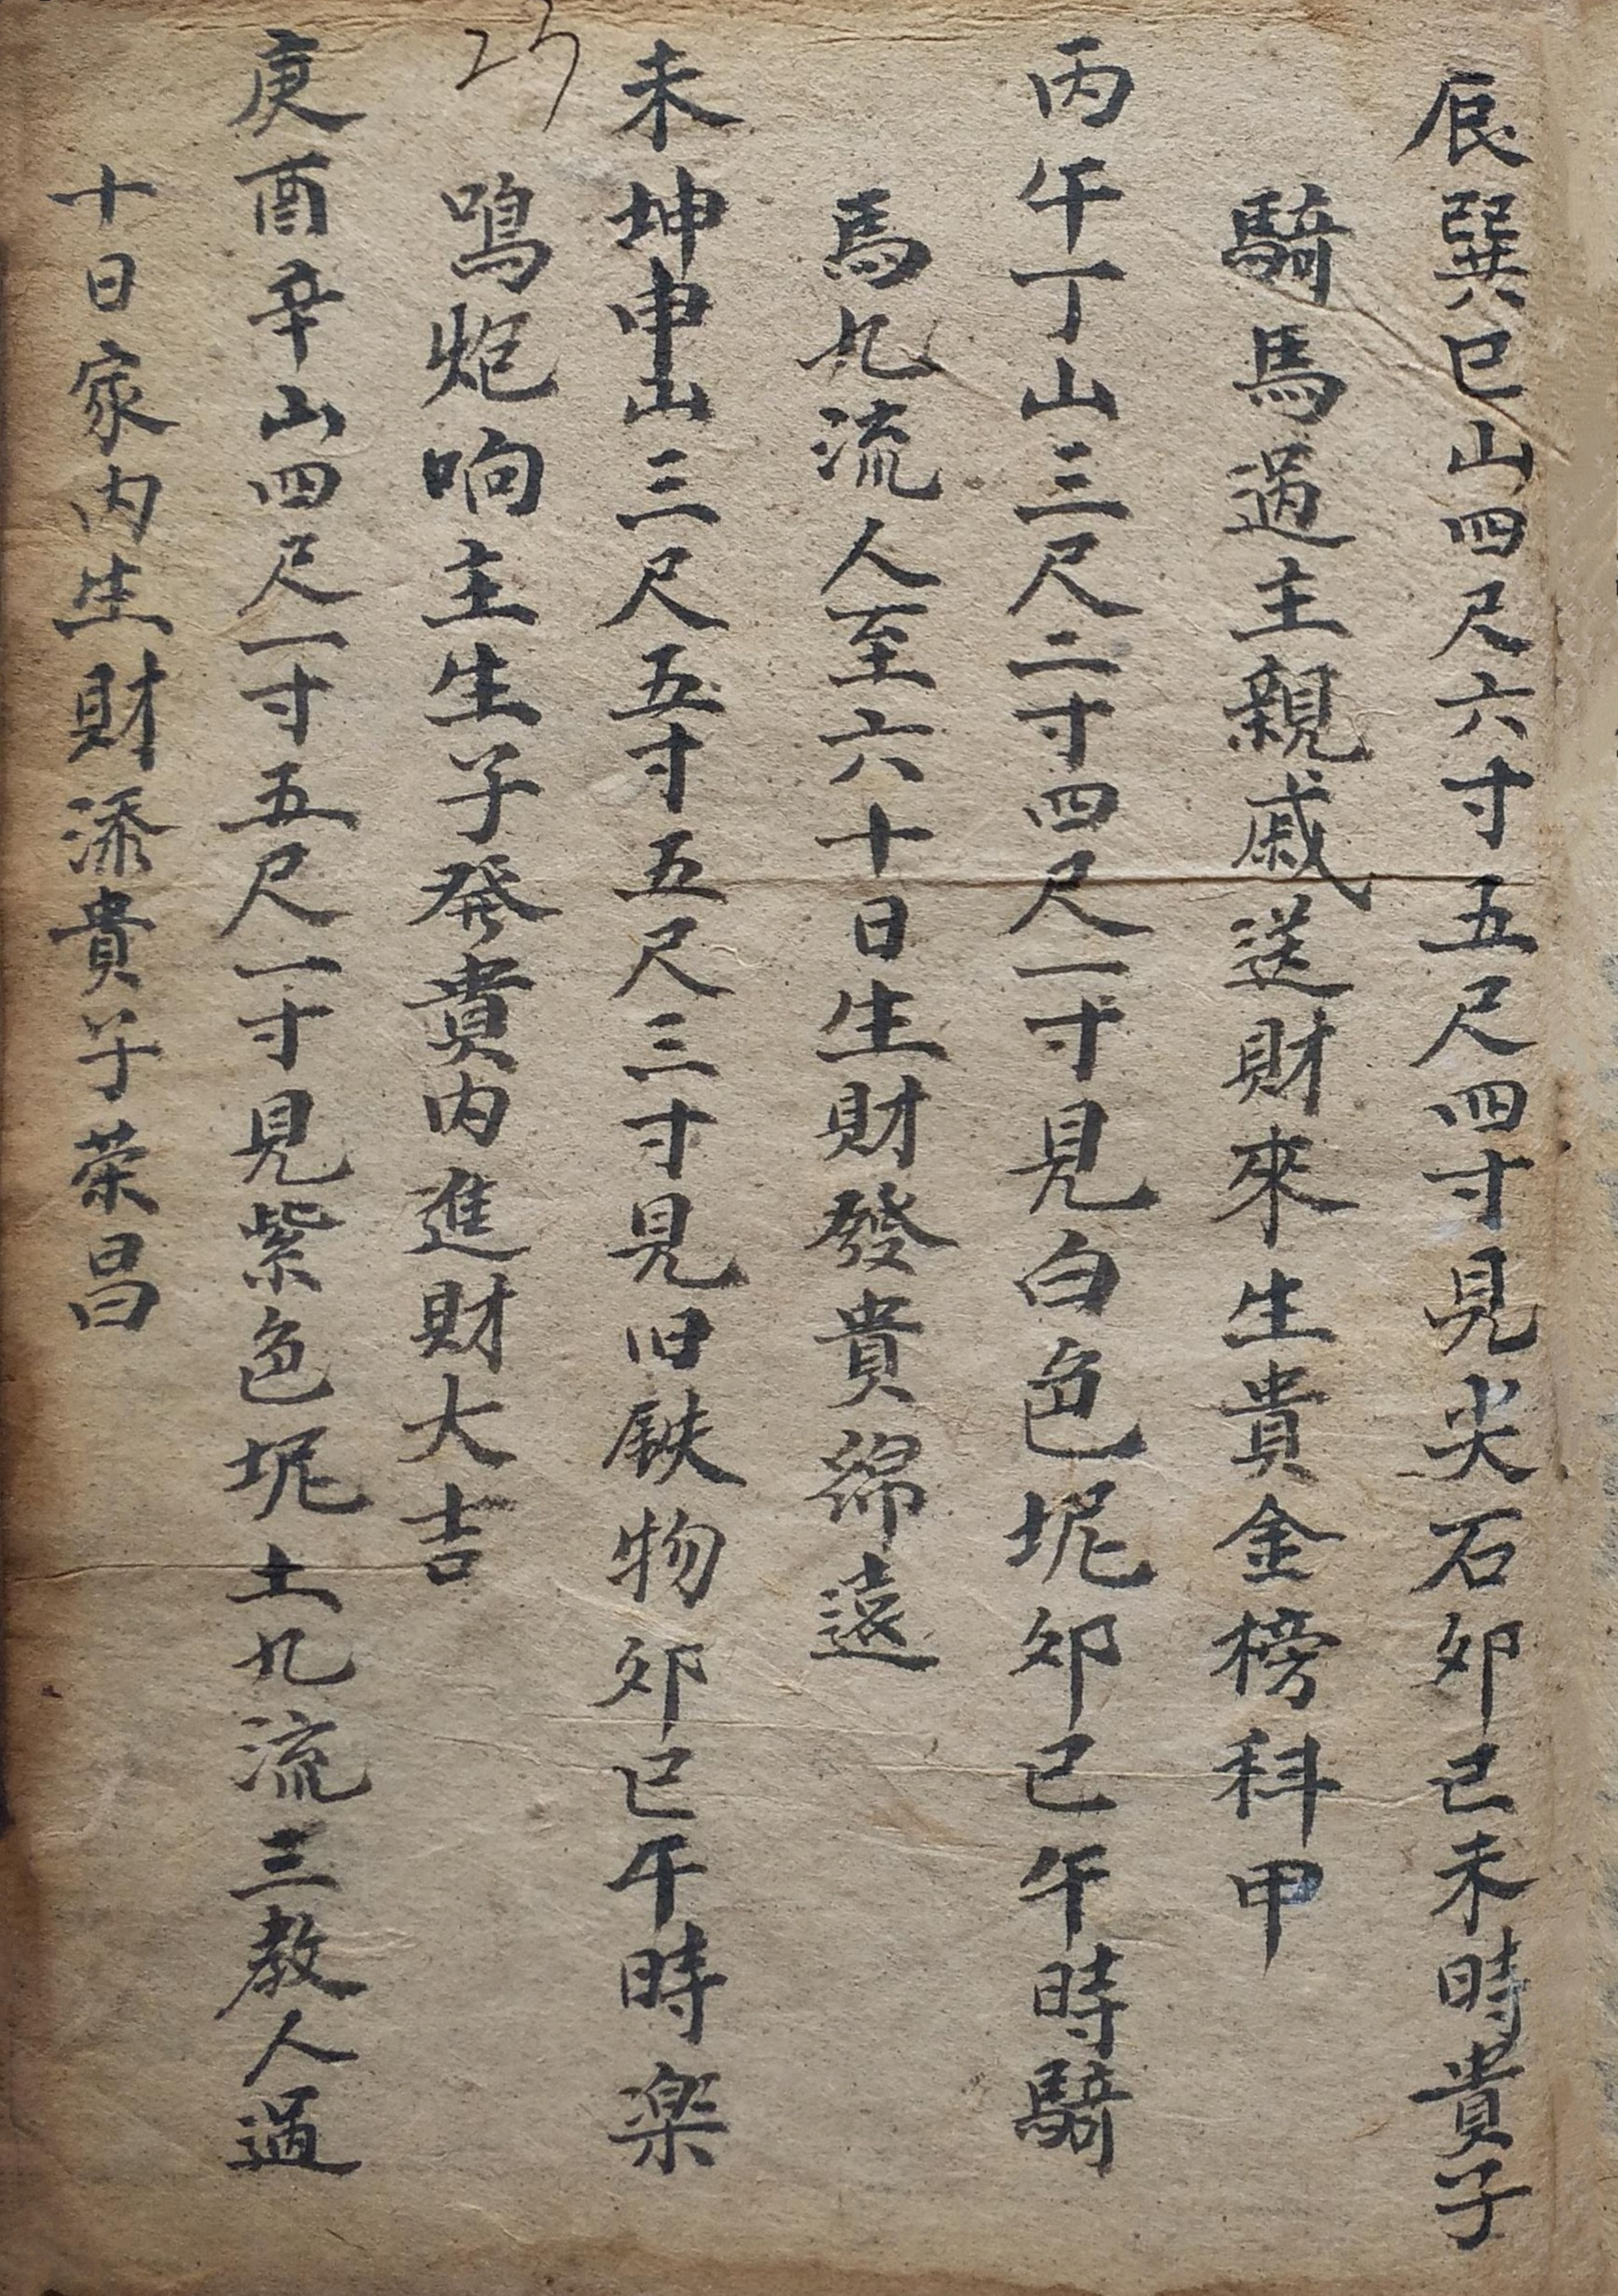 辰巽巳山四尺六寸五尺四寸見尖石卯巳未時貴子
騎馬過主親戚送財來生貴金榜科甲
丙午丁山三尺二寸四尺一寸見白色坭卯巳午時騎
馬九流人至六十日生財發貴綿遠
未坤申山三尺五寸五尺三寸見旧鉄物卯巳午時楽
鳴炮响主生子発貴内進財大吉
庚酉辛山四尺一寸五尺一寸見紫色坭土九流三教人過
十日家内生財添貴子荣昌